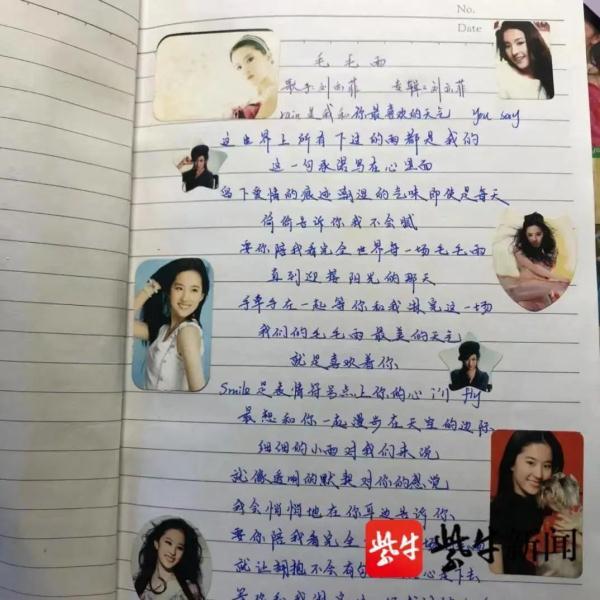 No.
Date
毛毛雨
歌手:刘亦菲 专辑:刘亦菲
rain是我和你最喜欢的天气 You say
这世界上所有下过的雨都是我的
这一句承诺写在心里面
留下爱情的痕迹潮湿的气味即使是每天
偷偷告诉你我不会腻
要你陪我看完全世界每一场毛毛雨
直到迎接阳光的那天
手牵手在一起等你和我淋完这一场
我们的毛毛雨最美的天气
就是喜欢着你
Smile是表情符号点上你的心 fly
最想和你一起漫步在天空的边际
细细的小雨对我们来说
就像透明的默契对你的感觉
我会悄悄地在你耳边告诉你
要你陪我看完全 场
就让拥抱不会有 心 下去
紫牛 紫牛新闻